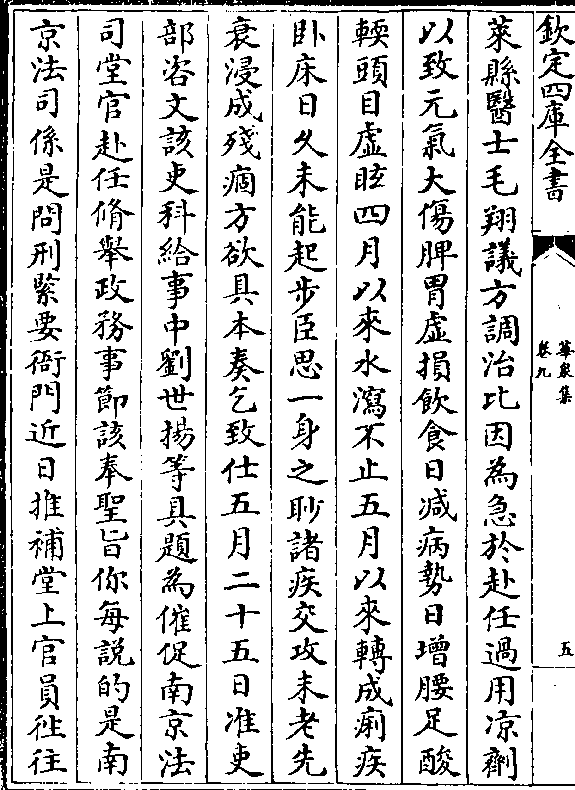 欽定四庫全書
華泉集
卷九
五
萊縣醫士毛翔議方調治比因為急於赴任過用凉劑
以致元氣大傷脾胃虛損飲食日減病勢日增腰足酸
輭頭目虛眩四月以來水瀉不止五月以來轉成痢疾
卧床日乆未能起步臣思一身之眇諸疾交攻未老先
衰浸成殘痼方欲具本奏乞致仕五月二十五日准吏
部咨文該吏科給事中劉世揚等具題為催促南京法
司堂官赴任脩舉政務事節該奉聖旨你每説的是南
京法司係是問刑緊要衙門近日推補堂上官員徃往